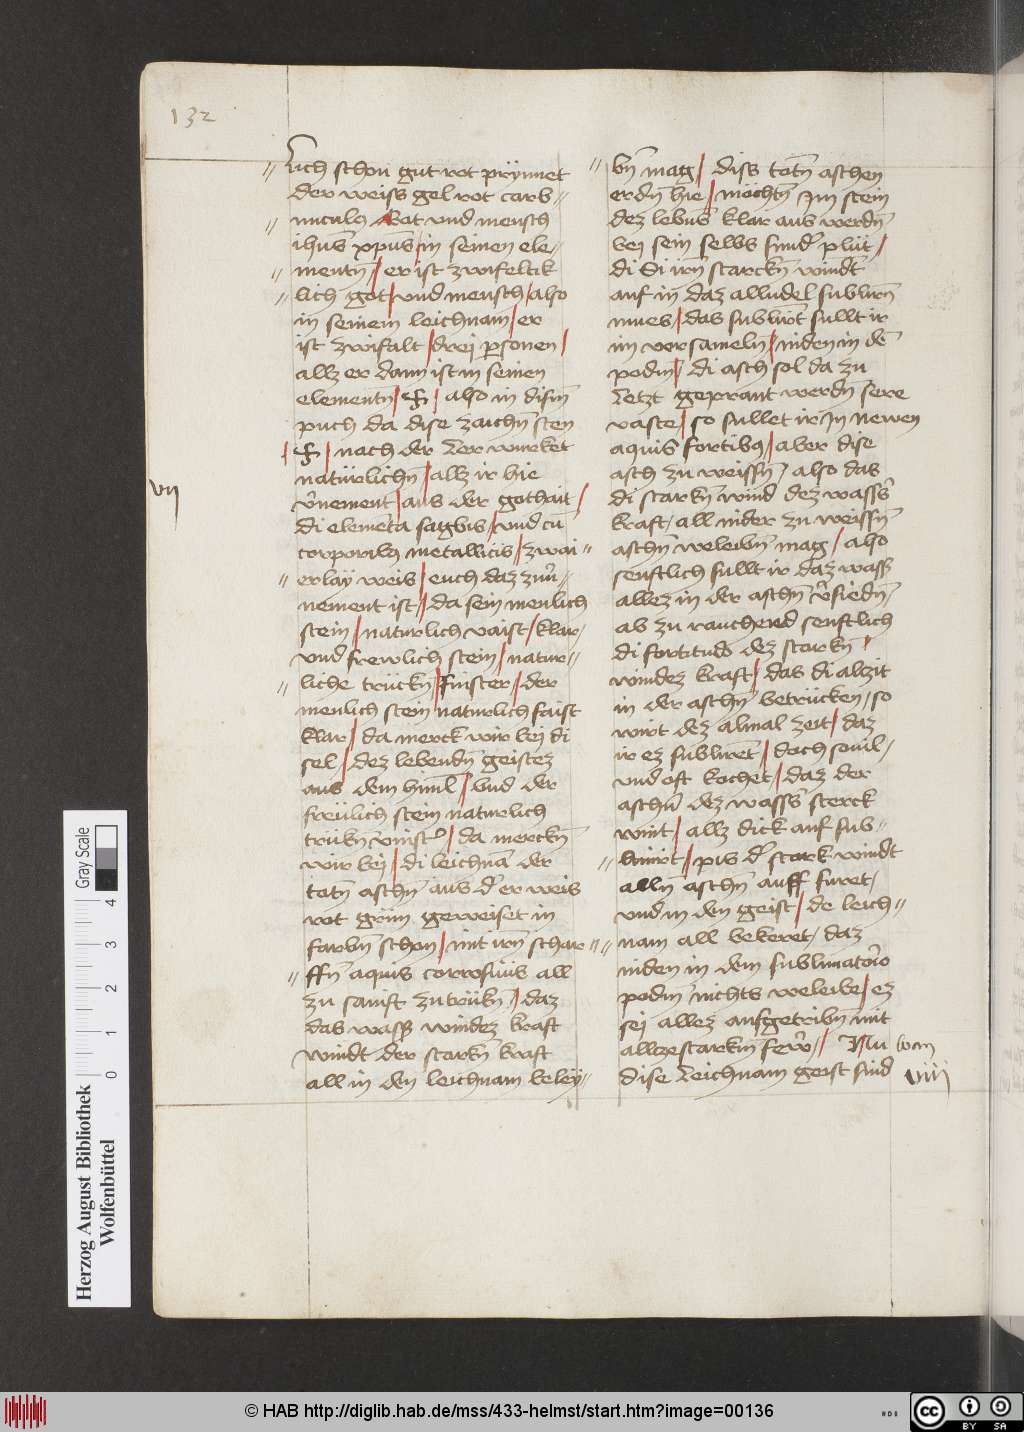 132
Auch schon gut rot prynnet
der weiss gel rot carb〃
unculus Got und mensch
ihus xpus / in seinen ele〃
mentn / er ist zwifeltik
lich got / und mensch / also
in seinem leichnam / er
ist zwifalt / drei personen /
allz er dann ist in seinen
elementn / also in disin
puch da dise zaichn sten
/ nach der Ler wurket
naturlichn / allz ir hie
vii
vernement / aus der gothait /
di elementa sagbis / und cum
corporibus metallicis / zwai〃
erlay weis / euch daz zuver〃
nement ist / da sein menlich
stein / naturlich vaist / klar /
und frewlich stein / natur〃
liche truckn / finster / der
menlich stein naturlich faist
klar / da merck wir bei di
sel / dez lebendn geistez
aus dem himl / und der
freulich stein naturlich
trukn vinster / da merckn
wir bei / di leichna der
totn aschn aus der er weis
rot grun geweiset in
farbn schon / mit irn schar〃
ffn aquis corrosiuis all
zu sanift zu trukn / daz
das wass windez kraft
windt der starkn kraft
all in den leichnam beley〃
bn mag / diss totn aschen
erdn hie / mochtn Im stein
dez lebus klar aus werdn
bei sein selbs sunder plut /
di Si irn starckn windt
auf in daz alludel sublirn
mues / das sublirt sullt ir
im versameln / niden in den
podin / di asch sol da zu
Letzt geprant werdn sere
vaste / so sullet ir In newen
aquis fortibus / aber dise
asch zu weissn / also das
di starkn wind dez wassers
kraft / all nider zu weissn
aschn weleibn mag / also
senftlich sullt ir daz wass
allez in der aschn versiedn /
ab zu rauchend senftlich
di fortitudo dez starkn /
windez kraft / das di alzit
in der aschn betrucken / so
wirt dez almal zeit / daz
ir ez subliret / doch souil /
und oft kochet / daz der
aschn dez wassers sterck
wint / allz dick auf sub〃
limirt / pis der stark windt
alln aschn auff furet /
und in den geist / de leich〃
nam all bekeret / daz
niden in dem sublimatorio
podin nichts weleibe / ez
sei allez aufgetribn mit
allzestarkm fewer / Nu wan
dise Leichnam geist sind
viii
Herzog August Bibliothek
Wolfenbüttel
Gray Scale
0 1 2 3 4
© HAB http://diglib.hab.de/mss/433-helmst/start.htm?image=00136
cc BY SA